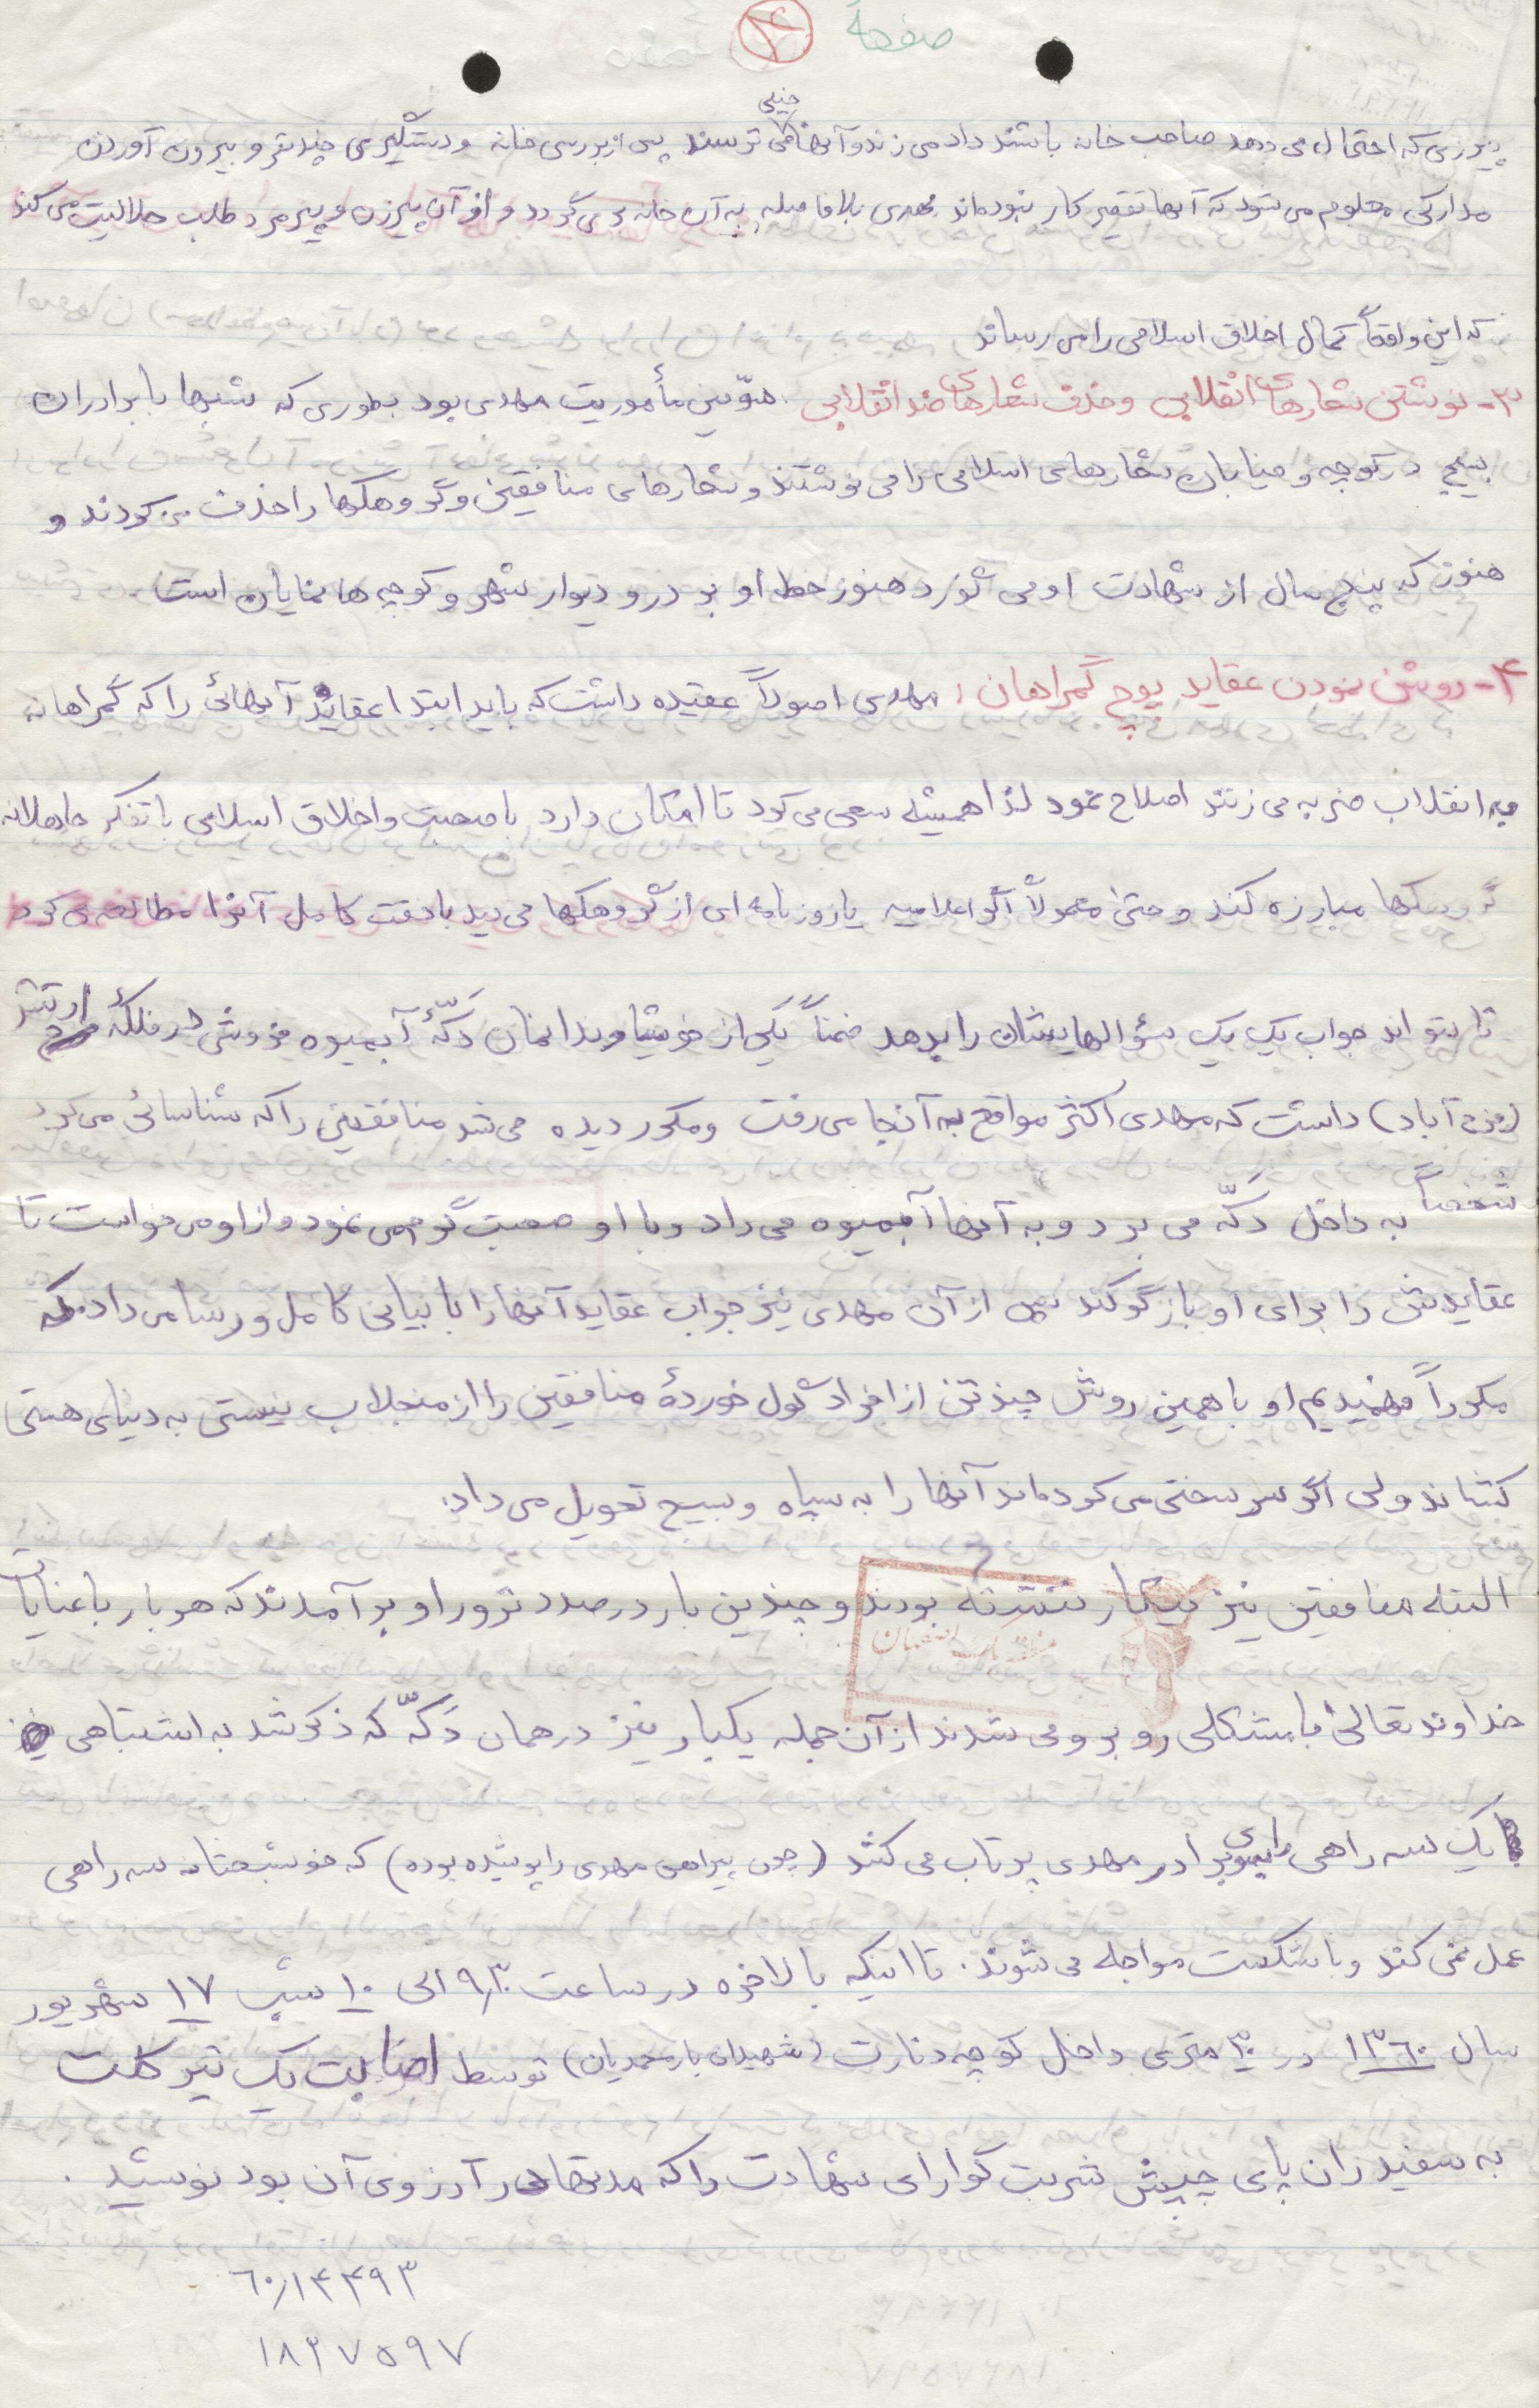 صفحهٔ ۴
خیلی
پیرزنی که احتمال می دهد صاحب خانه باشند داد می زند و آنها می ترسند پس از بررسی خانه و دستگیری چند نفر و بیرون آوردن
مدارکی معلوم می شود که آنها تقصیر کار نبوده‌اند مهدی بلافاصله به آن خانه بر می گردد و از آن پیرزن و پیرمرد طلب حلالیت می کند
که این واقعاً کمال اخلاق اسلامی را می رساند
۳- نوشتن شعارهای انقلابی و حذف شعارهای ضد انقلابی. سوّمین مأموریت مهدی بود بطوری که شبها با برادران
بسیج در کوچه و خیابان شعارهای اسلامی را می نوشتند و شعارهای منافقین و گروهکها را حذف می کردند و
هنوز که پنج سال از شهادت او می گذرد هنوز خط او بر در و دیوار شهر و کوچه ها نمایان است.
۴- روشن نمودن عقاید پوچ گمراهان: مهدی اصولاً عقیده داشت که باید ابتدا عقائد آنهائی را که گمراهانه
به انقلاب ضربه می زنند اصلاح نمود لذا همیشه سعی می کرد تا امکان دارد با صحبت و اخلاق اسلامی با تفکر جاهلانه
گروهکها مبارزه کند و حتیٰ معمولاً اگر اعلامیه یا روزنامه ای از گروهکها می دید با دقت کامل آنرا مطالعه می کرد
تا بتواند جواب یک یک سؤالهایشان را بدهد ضمناً یکی از خویشاوندانمان دَکّهٔ آبمیوه فروشی در فلکهٔ ارتش
(فرح آباد) داشت که مهدی اکثر مواقع به آنجا می رفت و مکرر دیده می شد منافقینی را که شناسائی می کرد
شخصاً به داخل دَکّه می برد و به آنها آبمیوه می داد و با او صحبت گرمی می نمود و از او می خواست تا
عقایدش را برای او بازگو کند پس از آن مهدی نیز جواب عقاید آنها را با بیانی کامل و رسا می داد که
مکرراً فهمیدیم او با همین روش چند تن از افراد گول خوردهٔ منافقین را از منجلاب نیستی به دنیای هستی
کشاند ولی اگر سرسختی می کرده‌اند آنها را به سپاه و بسیج تحویل می داد.
البته منافقین نیز بیکار ننشسته بودند و چندین بار در صدد ترور او بر آمدند که هر بار با عنایات
خداوند تعالیٰ با مشکلی روبرو می شدند از آن جمله یکبار نیز در همان دَکّه که ذکر شد به اشتباهی
یک سه راهی برای برادر مهدی پرتاب می کنند (چون پیراهن مهدی را پوشیده بوده) که خوشبختانه سه راهی
عمل نمی کند و با شکست مواجه می شوند. تا اینکه بالاخره در ساعت ۹/۳۰ الی ۱۰ شب ۱۷ شهریور
سال ۱۳۶۰ در ۳۰ متری داخل کوچه دنارت (شهیدان یارمحمدیان) توسط اصابت یک تیر کلت
به سفید ران پای چپش شربت گوارای شهادت را که مدتها در آرزوی آن بود نوشید.
۶۰/۱۴۴۹۳
۱۸۳۷۵۹۷